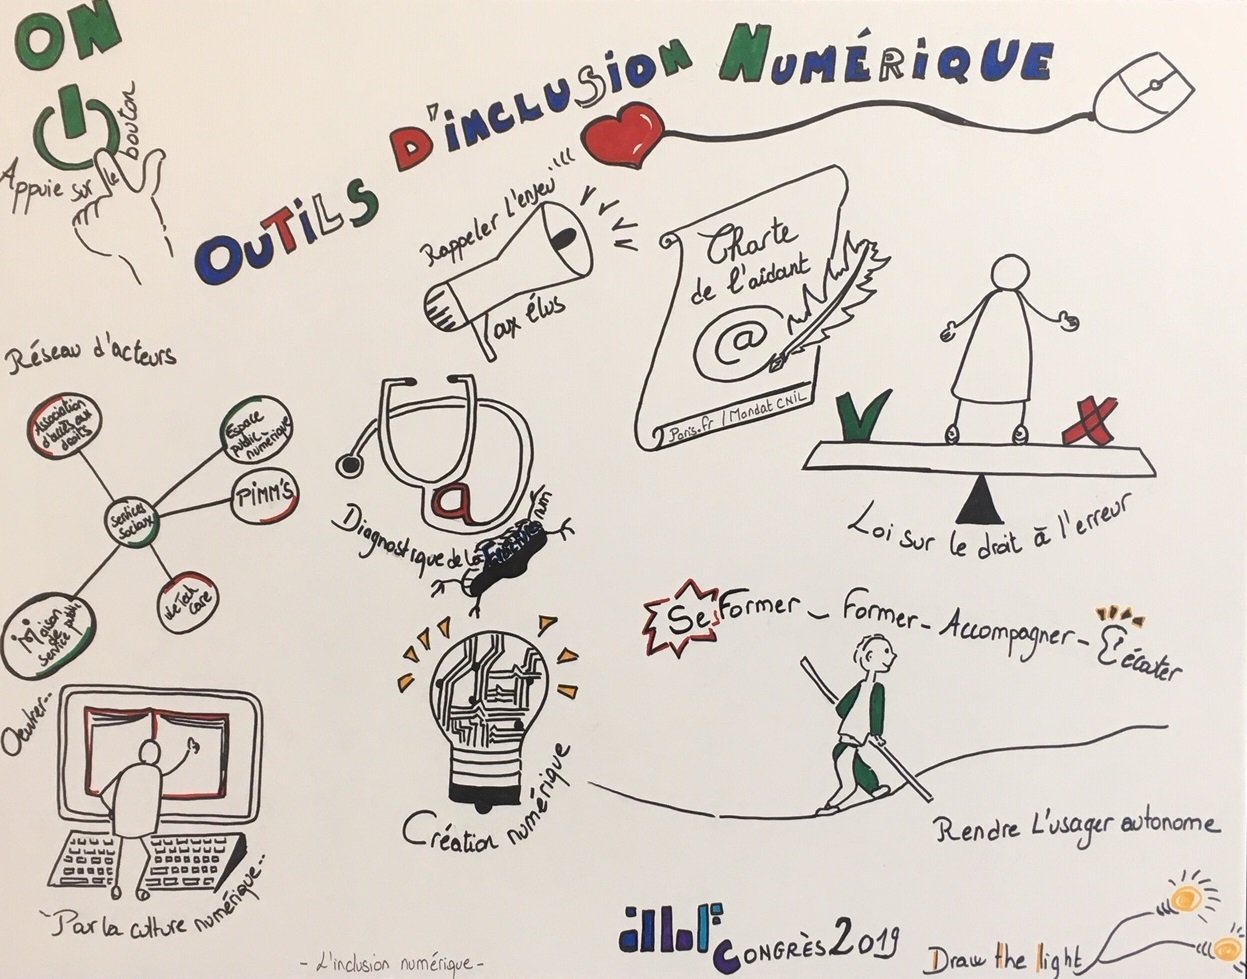 ON
Appuie sur le bouton
OUTILS D'INCLUSION NUMÉRIQUE
Rappeler L'enjeu
aux élus
Charte
de l'aidant
@
Paris.fr / Mandat CNIL
Loi sur le droit à l'erreur
Réseau d'acteurs
Association
d'accès aux
droits
Espace
public
numérique
PIMM'S
Services
Sociaux
Maison
de
Service public
WeTech
Care
a
Diagnostique de la Fracture num
Se Former - Former - Accompagner - L'écouter
Rendre L'usager autonome
Création numérique
Oeuvrer...
Par la culture numérique...
CONGRÈS 2019
Draw the light
- L'inclusion numérique -